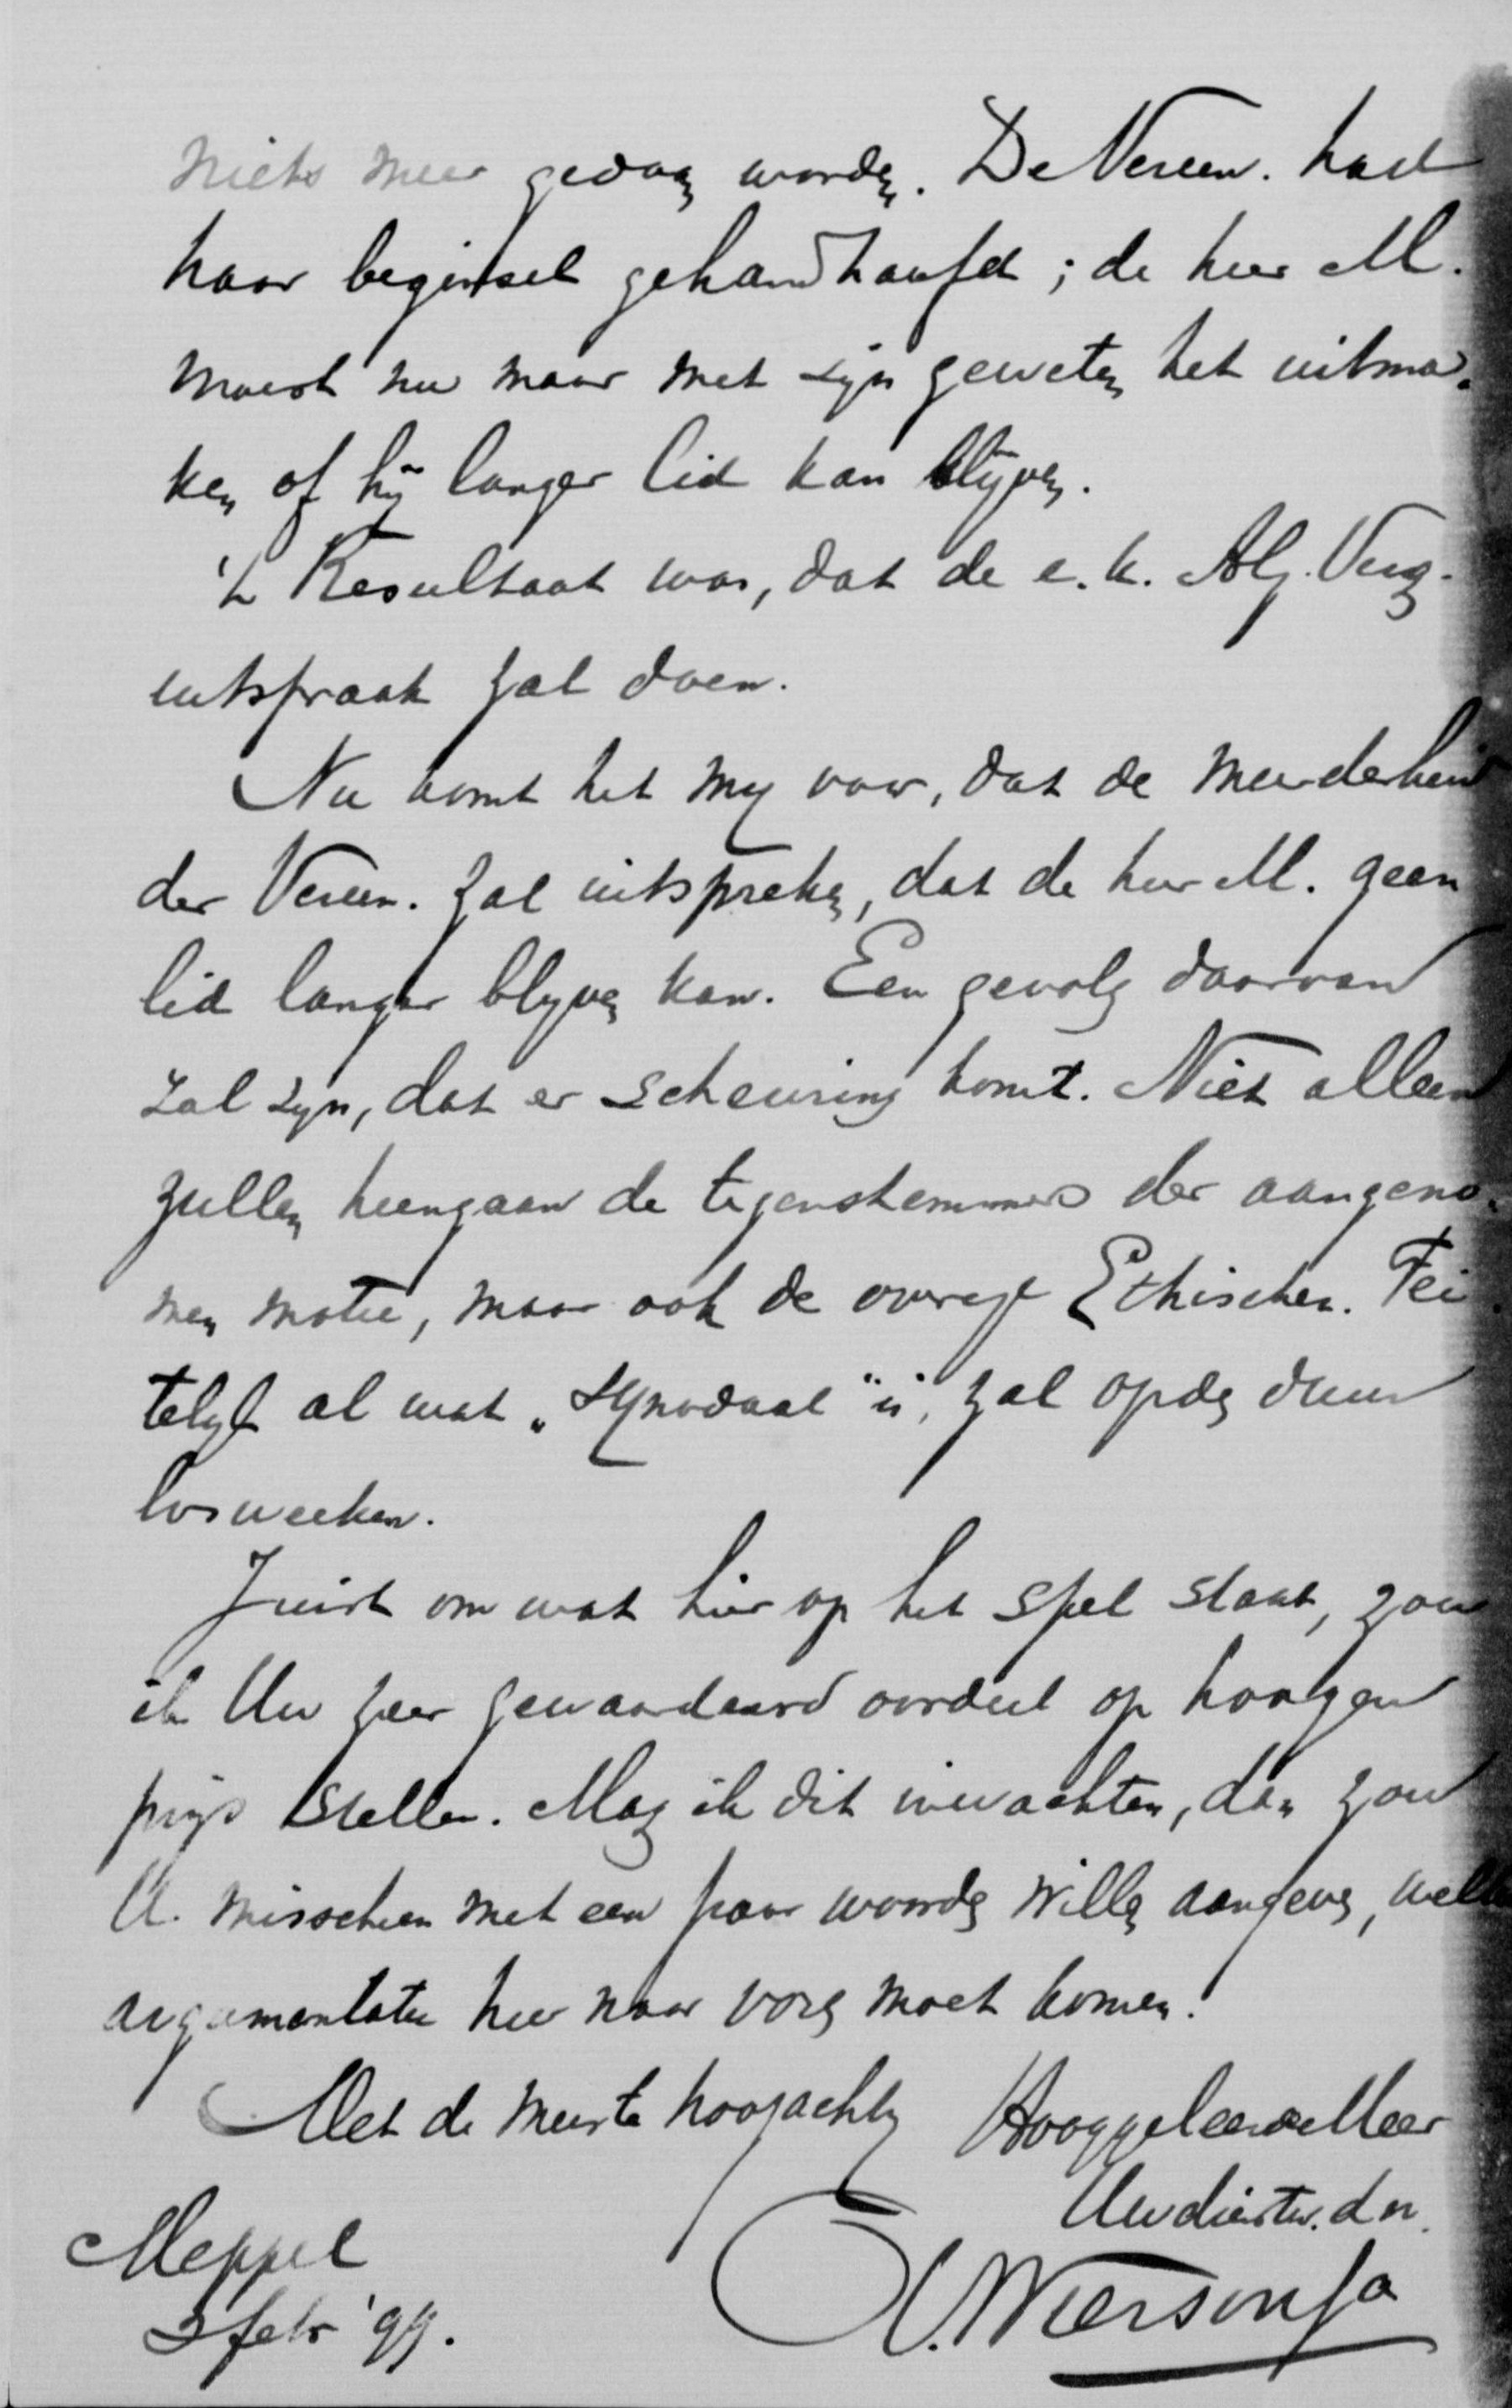 niets meer gedaan worden. De Vereen. had
haar beginsel gehandhaafd; de heer M.
moest nu maar met zijn geweten het uitma-
ken of hij langer lid kan blijven.
't Resultaat was, dat de e.k. Alg. Verg.
uitspraak zal doen.
Nu komt het my voor, dat de meerderheid
der Vereen. zal uitspreken, dat de heer M. geen
lid langer blyven kan. Een gevolg daarvan
zal zyn, dat er scheuring komt. Niet alleen
zullen heengaan de tegenstemmers der aangeno-
men motie, maar ook de overige Ethischen. Fei-
telyk al wat "synodaal" is, zal op den duur
losweeken.
Juist om wat hier op het spel staat, zou
ik Uw zeer gewaardeerd oordeel op hoogen
prijs stellen. Mag ik dit inwachten, dan zou
U. misschien met een paar woorden willen aangeven, welke
argumentatie hier naar voren moet komen.
Met de meeste hoogachting Hooggeleerde Heer
Uw dienstw. dn.
Meppel
2 febr '99. Wiersinga